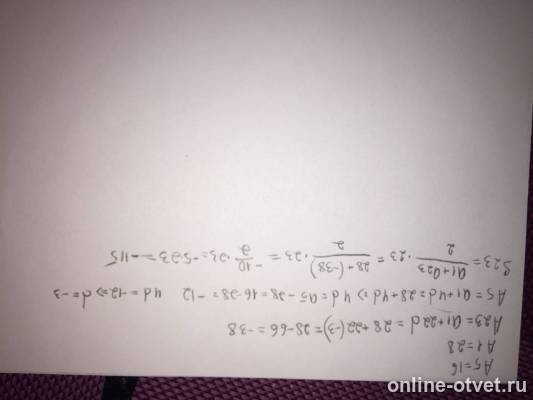 A5=16
A1=28
A23=a1+22d=28+22(-3)=28-66=-38
A5=a1+4d=28+4d=>4d=a5-28=16-28=-12 4d=-12=>d=-3
S23=\frac{a1+a23}{2}·23=\frac{28+(-38)}{2}·23=\frac{-10}{2}·23=-5·23=-115
online-otvet.ru